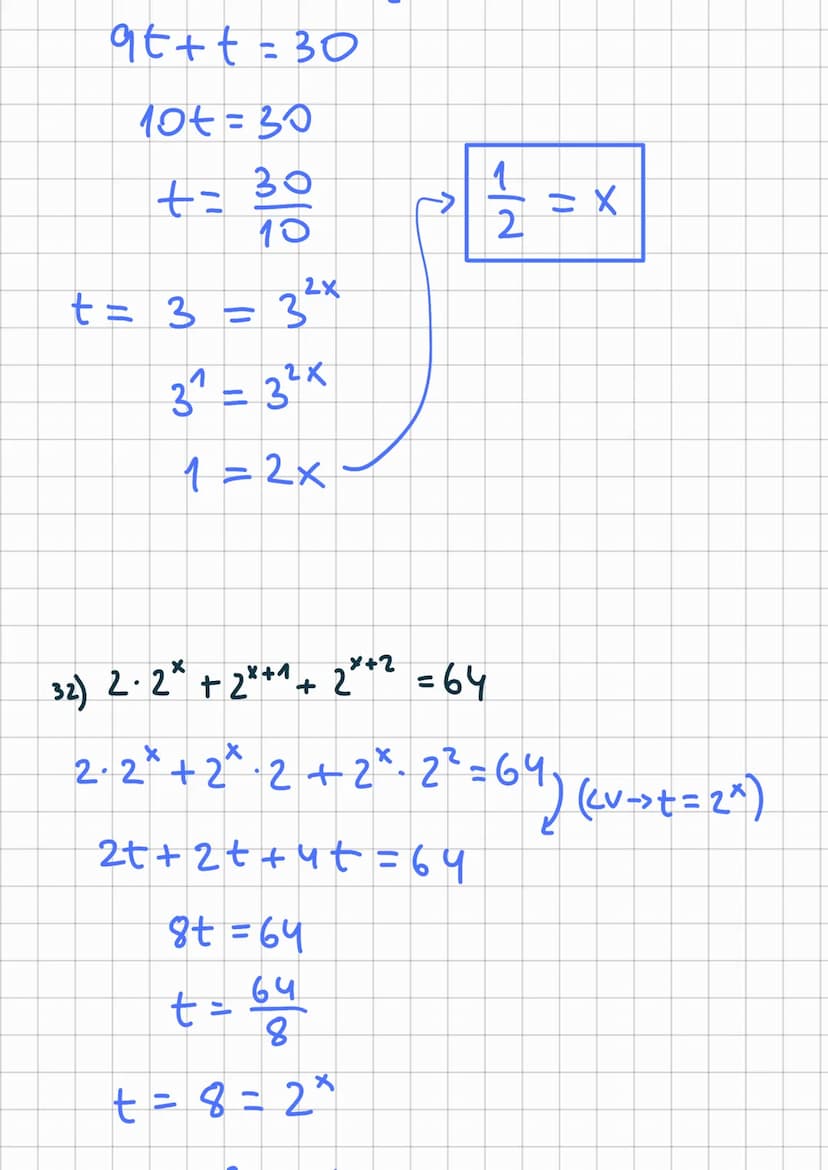 9t + t = 30
10t = 30
t = 30/10
t = 3 = 3^{2x}
3^1 = 3^{2x}
1 = 2x
1/2 = x
32) 2 · 2^x + 2^{x+1} + 2^{x+2} = 64
2 · 2^x + 2^x · 2 + 2^x · 2^2 = 64 (CV → t = 2^x)
2t + 2t + 4t = 64
8t = 64
t = 64/8
t = 8 = 2^x